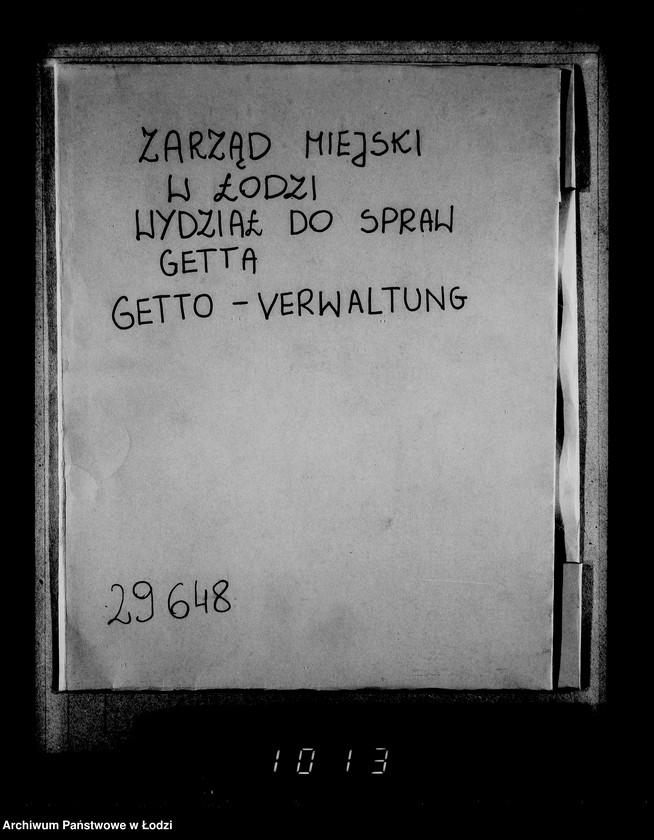 ZARZĄD MIEJSKI
W ŁODZI
WYDZIAŁ DO SPRAW
GETTA
GETTO - VERWALTUNG
29648
1013
Archiwum Państwowe w Łodzi